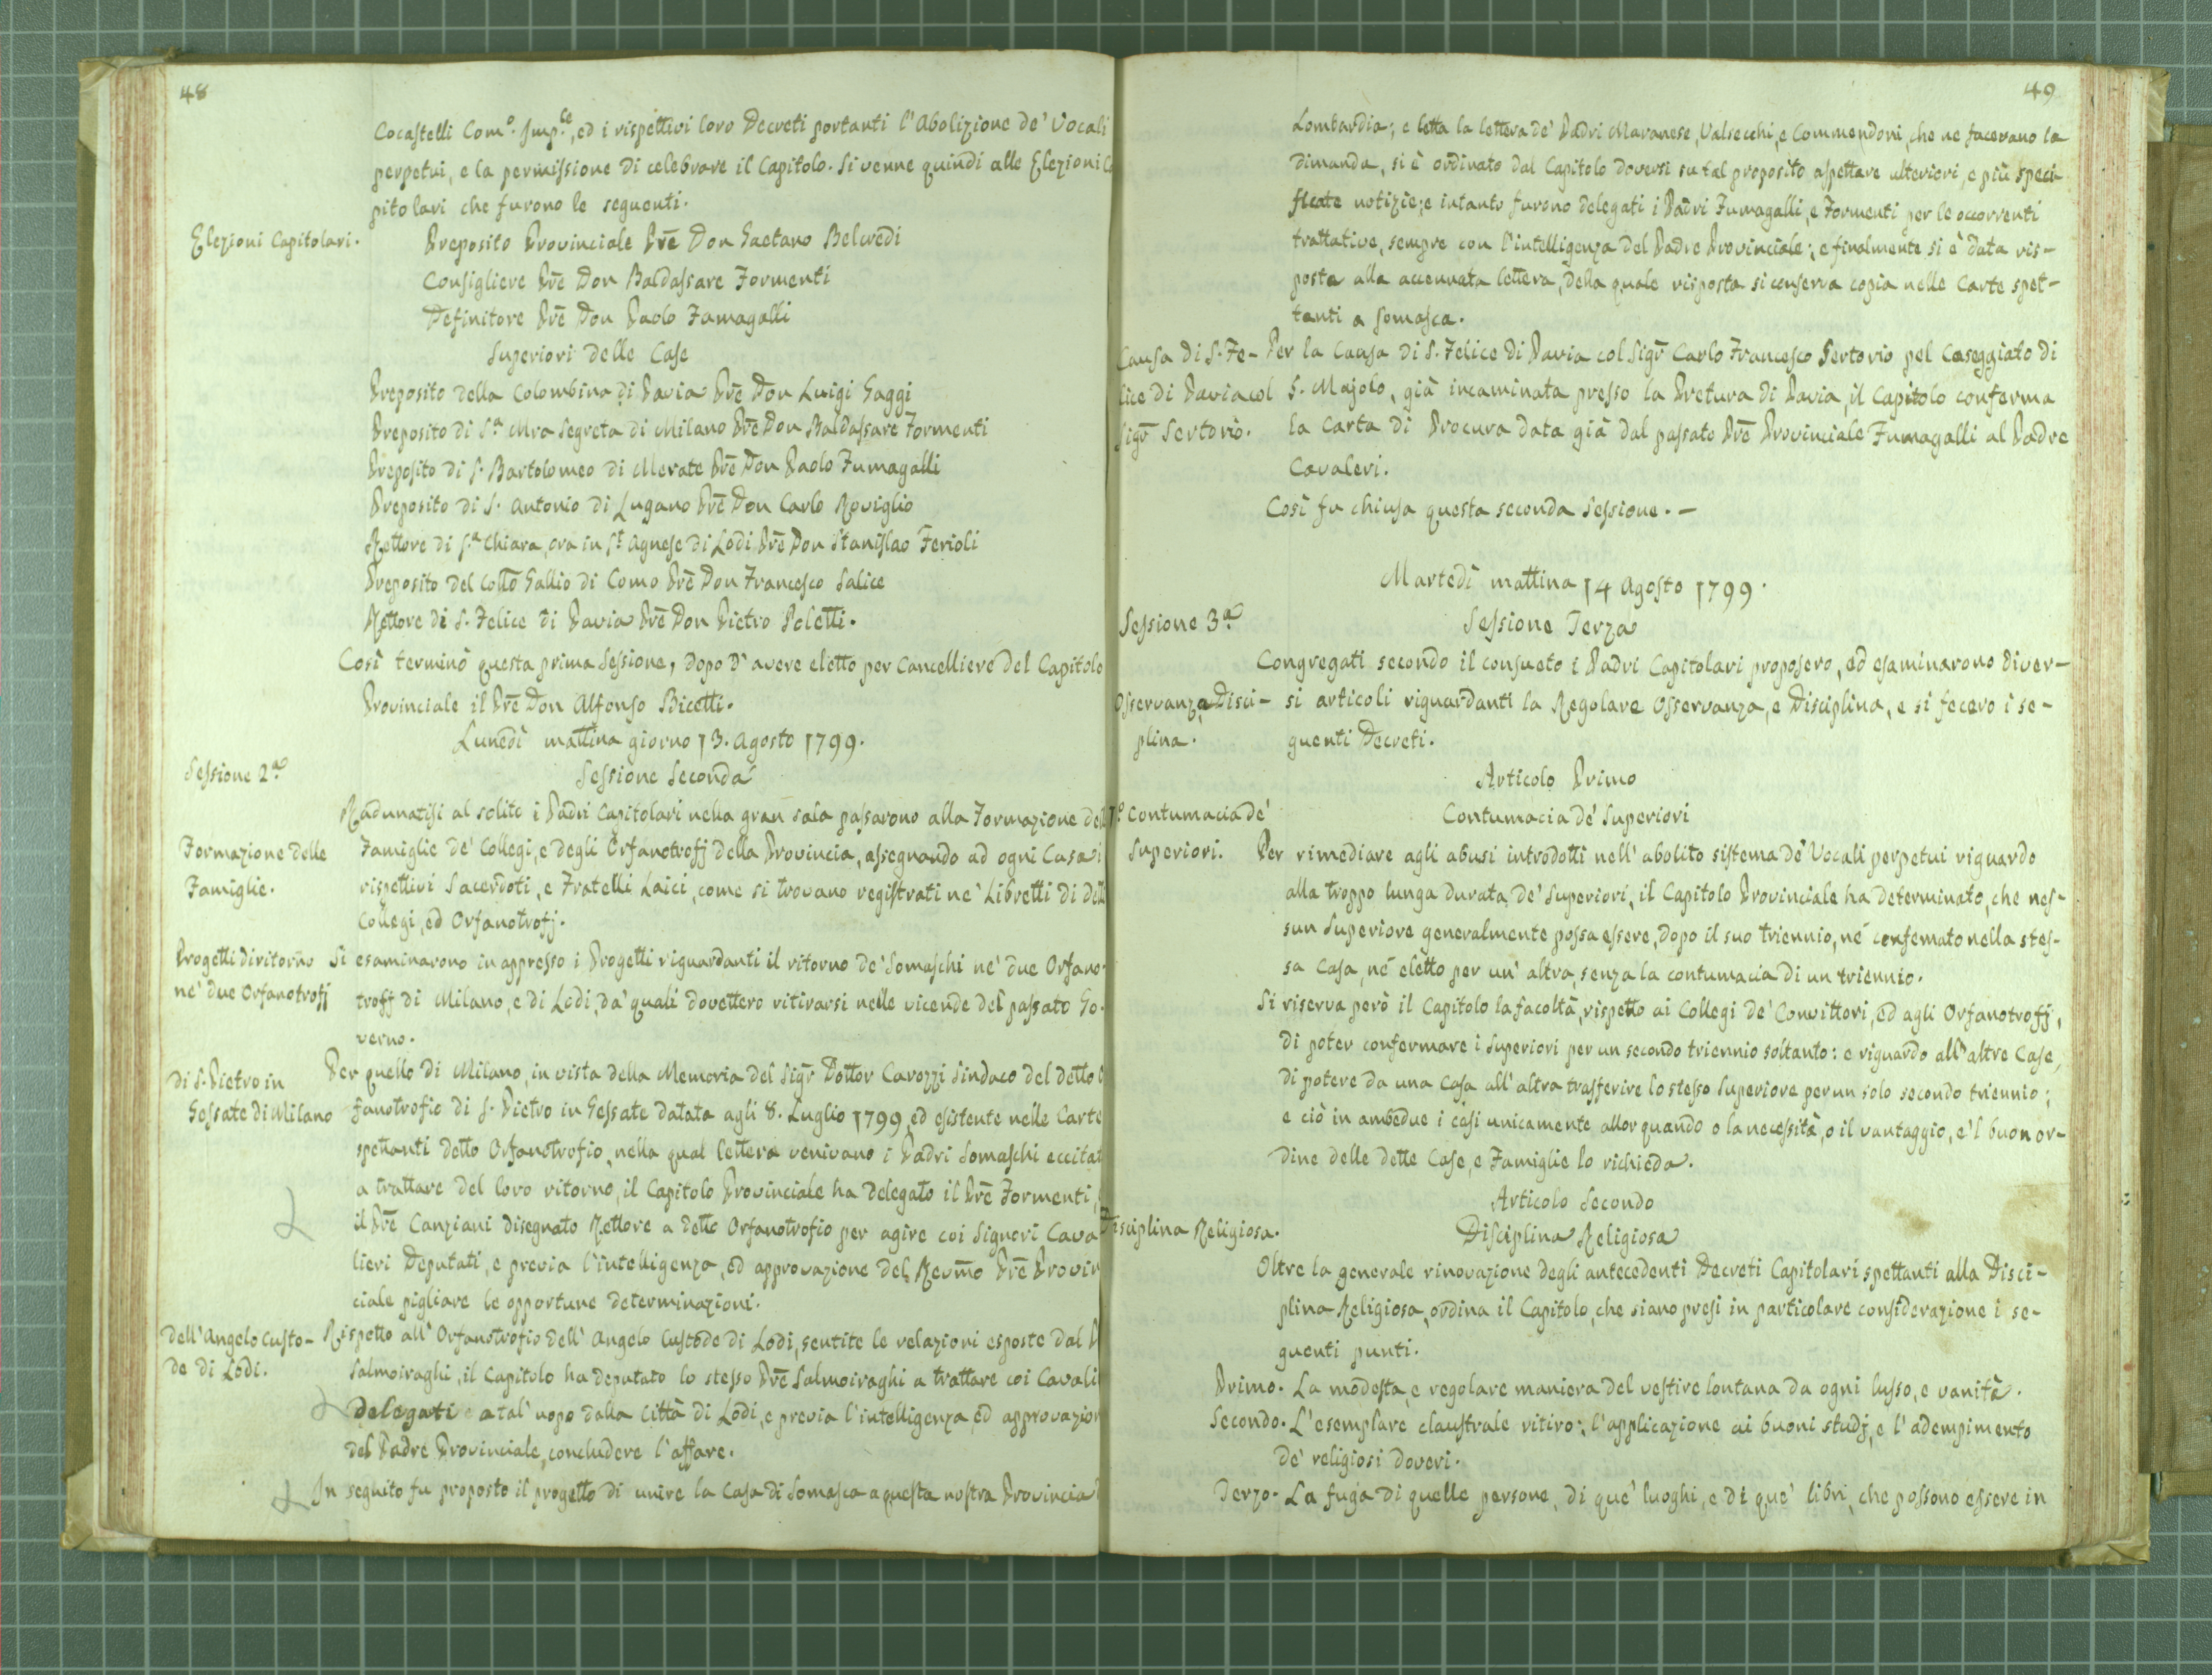 48
Cocastelli Com.º Imp.le, ed i rispettivi loro Decreti portanti l'Abolizione de' Vocali
perpetui, e la permissione di celebrare il Capitolo. Si venne quindi alle Elezioni Ca
pitolari che furono le seguenti.
Elezioni Capitolari.
Preposito Provinciale Prē Don Gaetano Belcredi
Consigliere Prē Don Baldassare Formenti
Definitore Prē Don Paolo Fumagalli
Superiori delle Case
Preposito della Colombina di Pavia Prē Don Luigi Gaggi
Preposito di S.ª Mra Segreta di Milano Prē Don Baldassare Formenti
Preposito di S. Bartolomeo di Merate Prē Don Paolo Fumagalli
Preposito di S. Antonio di Lugano Prē Don Carlo Roviglio
Rettore di S.ª Chiara, ora in S.t Agnese di Lodi Prē Don Stanislao Ferioli
Preposito del Collō Gallio di Como Prē Don Francesco Salice
Rettore di S. Felice di Pavia Prē Don Pietro Poletti.
Così terminò questa prima Sessione, dopo d'avere eletto per Cancelliere del Capitolo
Provinciale il Prē Don Alfonso Bicetti.
Lunedì mattina giorno 13. Agosto 1799.
Sessione 2.ª
Sessione Seconda
Radunatisi al solito i Padri Capitolari nella gran sala passarono alla Formazione del
Formazione delle
Famiglie.
Famiglie de' Collegi, e degli Orfanotrofj della Provincia, assegnando ad ogni Casa i
rispettivi Sacerdoti, e Fratelli Laici, come si trovano registrati ne' Libretti di dett
Collegi, ed Orfanotrofj.
Progetti di ritorno
ne' due Orfanotrofj
Si esaminarono in appresso i Progetti riguardanti il ritorno de' Somaschi ne' due Orfano-
trofj di Milano, e di Lodi, da' quali dovettero ritirarsi nelle vicende del passato Go-
verno.
di S. Pietro in
Gessate di Milano
Per quello di Milano, in vista della Memoria del Sigr̄ Dottor Carozzi Sindaco del detto O
fanotrofio di S. Pietro in Gessate datata agli 8. Luglio 1799, ed esistente nelle Carte
spettanti detto Orfanotrofio, nella qual lettera venivano i Padri Somaschi eccitat
a trattare del loro ritorno, il Capitolo Provinciale ha delegato il Prē Formenti,
il Prē Canziani disegnato Rettore a detto Orfanotrofio per agire coi Signori Cava
lieri Deputati, e previa l'intelligenza, ed approvazione del Revm̄o Prē Provin
ciale pigliare le opportune determinazioni.
dell'Angelo Custo-
de di Lodi.
Rispetto all'Orfanotrofio dell'Angelo Custode di Lodi, sentite le relazioni esposte dal P
Salmoiraghi, il Capitolo ha deputato lo stesso Prē Salmoiraghi a trattare coi Cavali
delegati a tal' uopo dalla Città di Lodi, e previa l'intelligenza, ed approvazion
del Padre Provinciale, concludere l'affare.
In seguito fu proposto il progetto di unire la Casa di Somasca a questa nostra Provincia
49
Lombardia; e letta la lettera de' Padri Maranese, Valsecchi, e Commendoni, che ne facevano la
dimanda, si è ordinato dal Capitolo doversi su tal proposito aspettare ulteriori, e più speci-
ficate notizie; e intanto furono delegati i Padri Fumagalli, e Formenti per le occorrenti
trattative, sempre con l'intelligenza del Padre Provinciale; e finalmente si è data ris-
posta alla accennata lettera, della quale risposta si conserva copia nelle Carte spet-
tanti a Somasca.
Causa di S. Fe-
lice di Pavia col
Sigr̄ Sertorio.
Per la Causa di S. Felice di Pavia col Sigr̄ Carlo Francesco Sertorio pel Caseggiato di
S. Majolo, già incaminata presso la Pretura di Pavia, il Capitolo conferma
la Carta di Procura data già dal passato Prē Provinciale Fumagalli al Padre
Cavaleri.
Così fu chiusa questa seconda Sessione. -
Martedì mattina 14 Agosto 1799.
Sessione 3.ª
Sessione Terza
Congregati secondo il consueto i Padri Capitolari proposero, ed esaminarono diver-
Osservanza, e Disci-
plina.
si articoli riguardanti la Regolare Osservanza, e Disciplina, e si fecero i se-
guenti Decreti.
Articolo Primo
1.º Contumacia de'
Superiori.
Contumacia de' Superiori
Per rimediare agli abusi introdotti nell'abolito sistema de' Vocali perpetui riguardo
alla troppo lunga durata de' Superiori, il Capitolo Provinciale ha determinato, che nes-
sun Superiore generalmente possa essere, dopo il suo triennio, né confemato nella stes-
sa Casa, né eletto per un' altra, senza la contumacia di un triennio.
Si riserva però il Capitolo la facoltà, rispetto ai Collegi de' Convittori, ed agli Orfanotrofj,
di poter confermare i Superiori per un secondo triennio soltanto: e riguardo all'altre Case,
di potere da una Casa all'altra trasferire lo stesso Superiore per un solo secondo triennio;
e ciò in ambedue i casi unicamente allor quando o la necessità, o il vantaggio, e 'l buon or-
dine delle dette Case, e Famiglie lo richieda.
Articolo Secondo
Disciplina Religiosa.
Disciplina Religiosa
Oltre la generale rinovazione degli antecedenti Decreti Capitolari spettanti alla Disci-
plina Religiosa, ordina il Capitolo, che siano presi in particolare considerazione i se-
guenti punti.
Primo. La modesta, e regolare maniera del vestire lontana da ogni lusso, e vanità.
Secondo. L'esemplare claustrale ritiro; l'applicazione ai buoni studj, e l'adempimento
de' religiosi doveri.
Terzo. La fuga di quelle persone, di que' luoghi, e di que' libri, che possono essere in